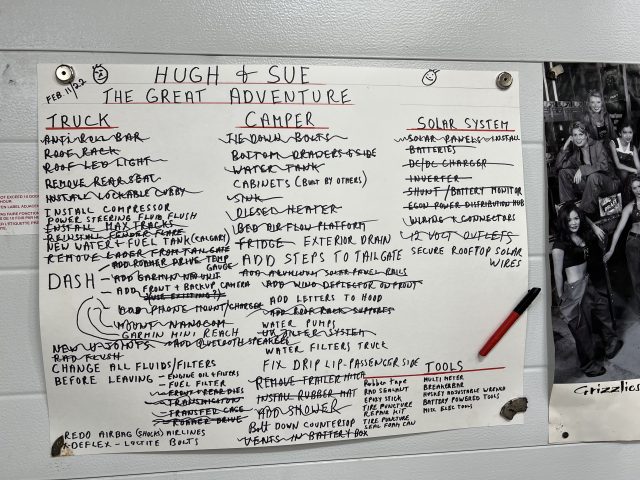 FEB 11/22
HUGH & SUE
THE GREAT ADVENTURE
TRUCK
ANTI ROLL BAR
ROOF RACK
ROOF LED LIGHT
REMOVE REAR SEAT
INSTALL LOCKABLE CUBBY
INSTALL COMPRESSOR
POWER STEERING FLUID FLUSH
INSTALL MAX TRACKS
REINSTALL FENDER FLARE
NEW WATER & FUEL TANK (CALGARY)
REMOVE LADER FROM TAILGATE
DASH
- ADD RONNER DRIVE TEMP GAUGE
- ADD GARMIN NEW UNIT
- ADD FRONT & BACKUP CAMERA
(USE EXISTING?)
ADD PHONE MOUNT/CHARGER
MOUNT NANOCOM
GARMIN MINI REACH
NEW U-JOINTS
- ADD BLUETOOTH SPEAKERS
RAD FLUSH
CHANGE ALL FLUIDS/FILTERS
BEFORE LEAVING
- ENGINE OIL & FILTER
- FUEL FILTER
- FRONT & REAR DIFFS
- TRANSMISSION
- TRANSFER CASE
REDO AIRBAG (SHOCKS) AIRLINES
DEFLEX - LOCTITE BOLTS
CAMPER
TIE DOWN BOLTS
WATER TANK
CABINETS (BUILT BY OTHERS)
SINK
DIESEL HEATER
BED AIR FLOW PLATFORM
FRIDGE EXTERIOR DRAIN
ADD STEPS TO TAILGATE
ADD ALUMINUM SOLAR PANEL RAILS
ADD WIND DEFLECTOR ON FRONT
ADD LETTERS TO HOOD
ADD ROOF RACK SUPPORTS
WATER PUMPS
UV FILTER SYSTEM
WATER FILTERS TRUCK
FIX DRIP LIP - PASSENGER SIDE
REMOVE TRAILER HITCH
INSTALL RUBBER MAT
ADD SHOWER
Bolt DOWN COUNTERTOP
VENTS IN BATTERY BOX
Rubber tape
RAD SEALANT
EPOXY STICK
TIRE PUNCTURE
REPAIR KIT
TIRE PUNCTURE
SEAL FOAM CAN
SOLAR SYSTEM
SOLAR PANELS - INSTALL
BATTERIES
DC/DC CHARGER
INVERTER
SHUNT/BATTERY MONITOR
EGON POWER DISTRIBUTION HUB
WIRING & CONNECTORS
12 VOLT OUTLETS
SECURE ROOFTOP SOLAR
WIRES
TOOLS
MULTI METER
BREAKERBAR
HUSKEY ADJUSTABLE WRENCH
BATTERY POWERED TOOLS
MISC ELEC TOOLS
Grizzlies